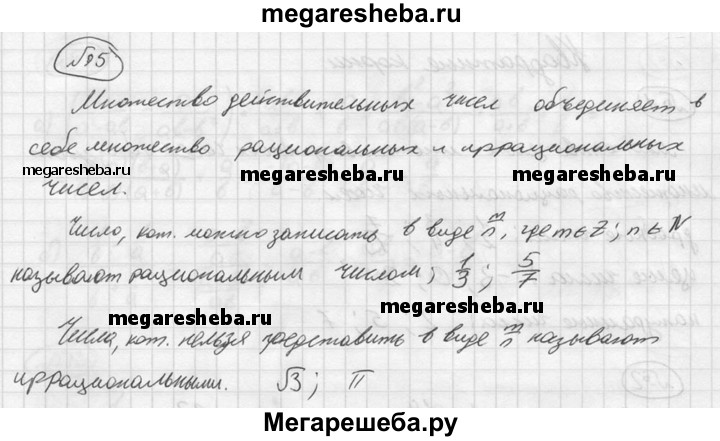 megaresheba.ru
№95
Множество действительных чисел объединяет в
себе множество рациональных и иррациональных
megaresheba.ru megaresheba.ru megaresheba.ru
чисел.
Число, кот. можно записать в виде m/n, где m∈Z; n∈N
называют рациональным числом; 1/3; 5/7
megaresheba.ru megaresheba.ru
Числа, кот. нельзя представить в виде m/n называют
иррациональными. √3; π
Мегарешеба.ру